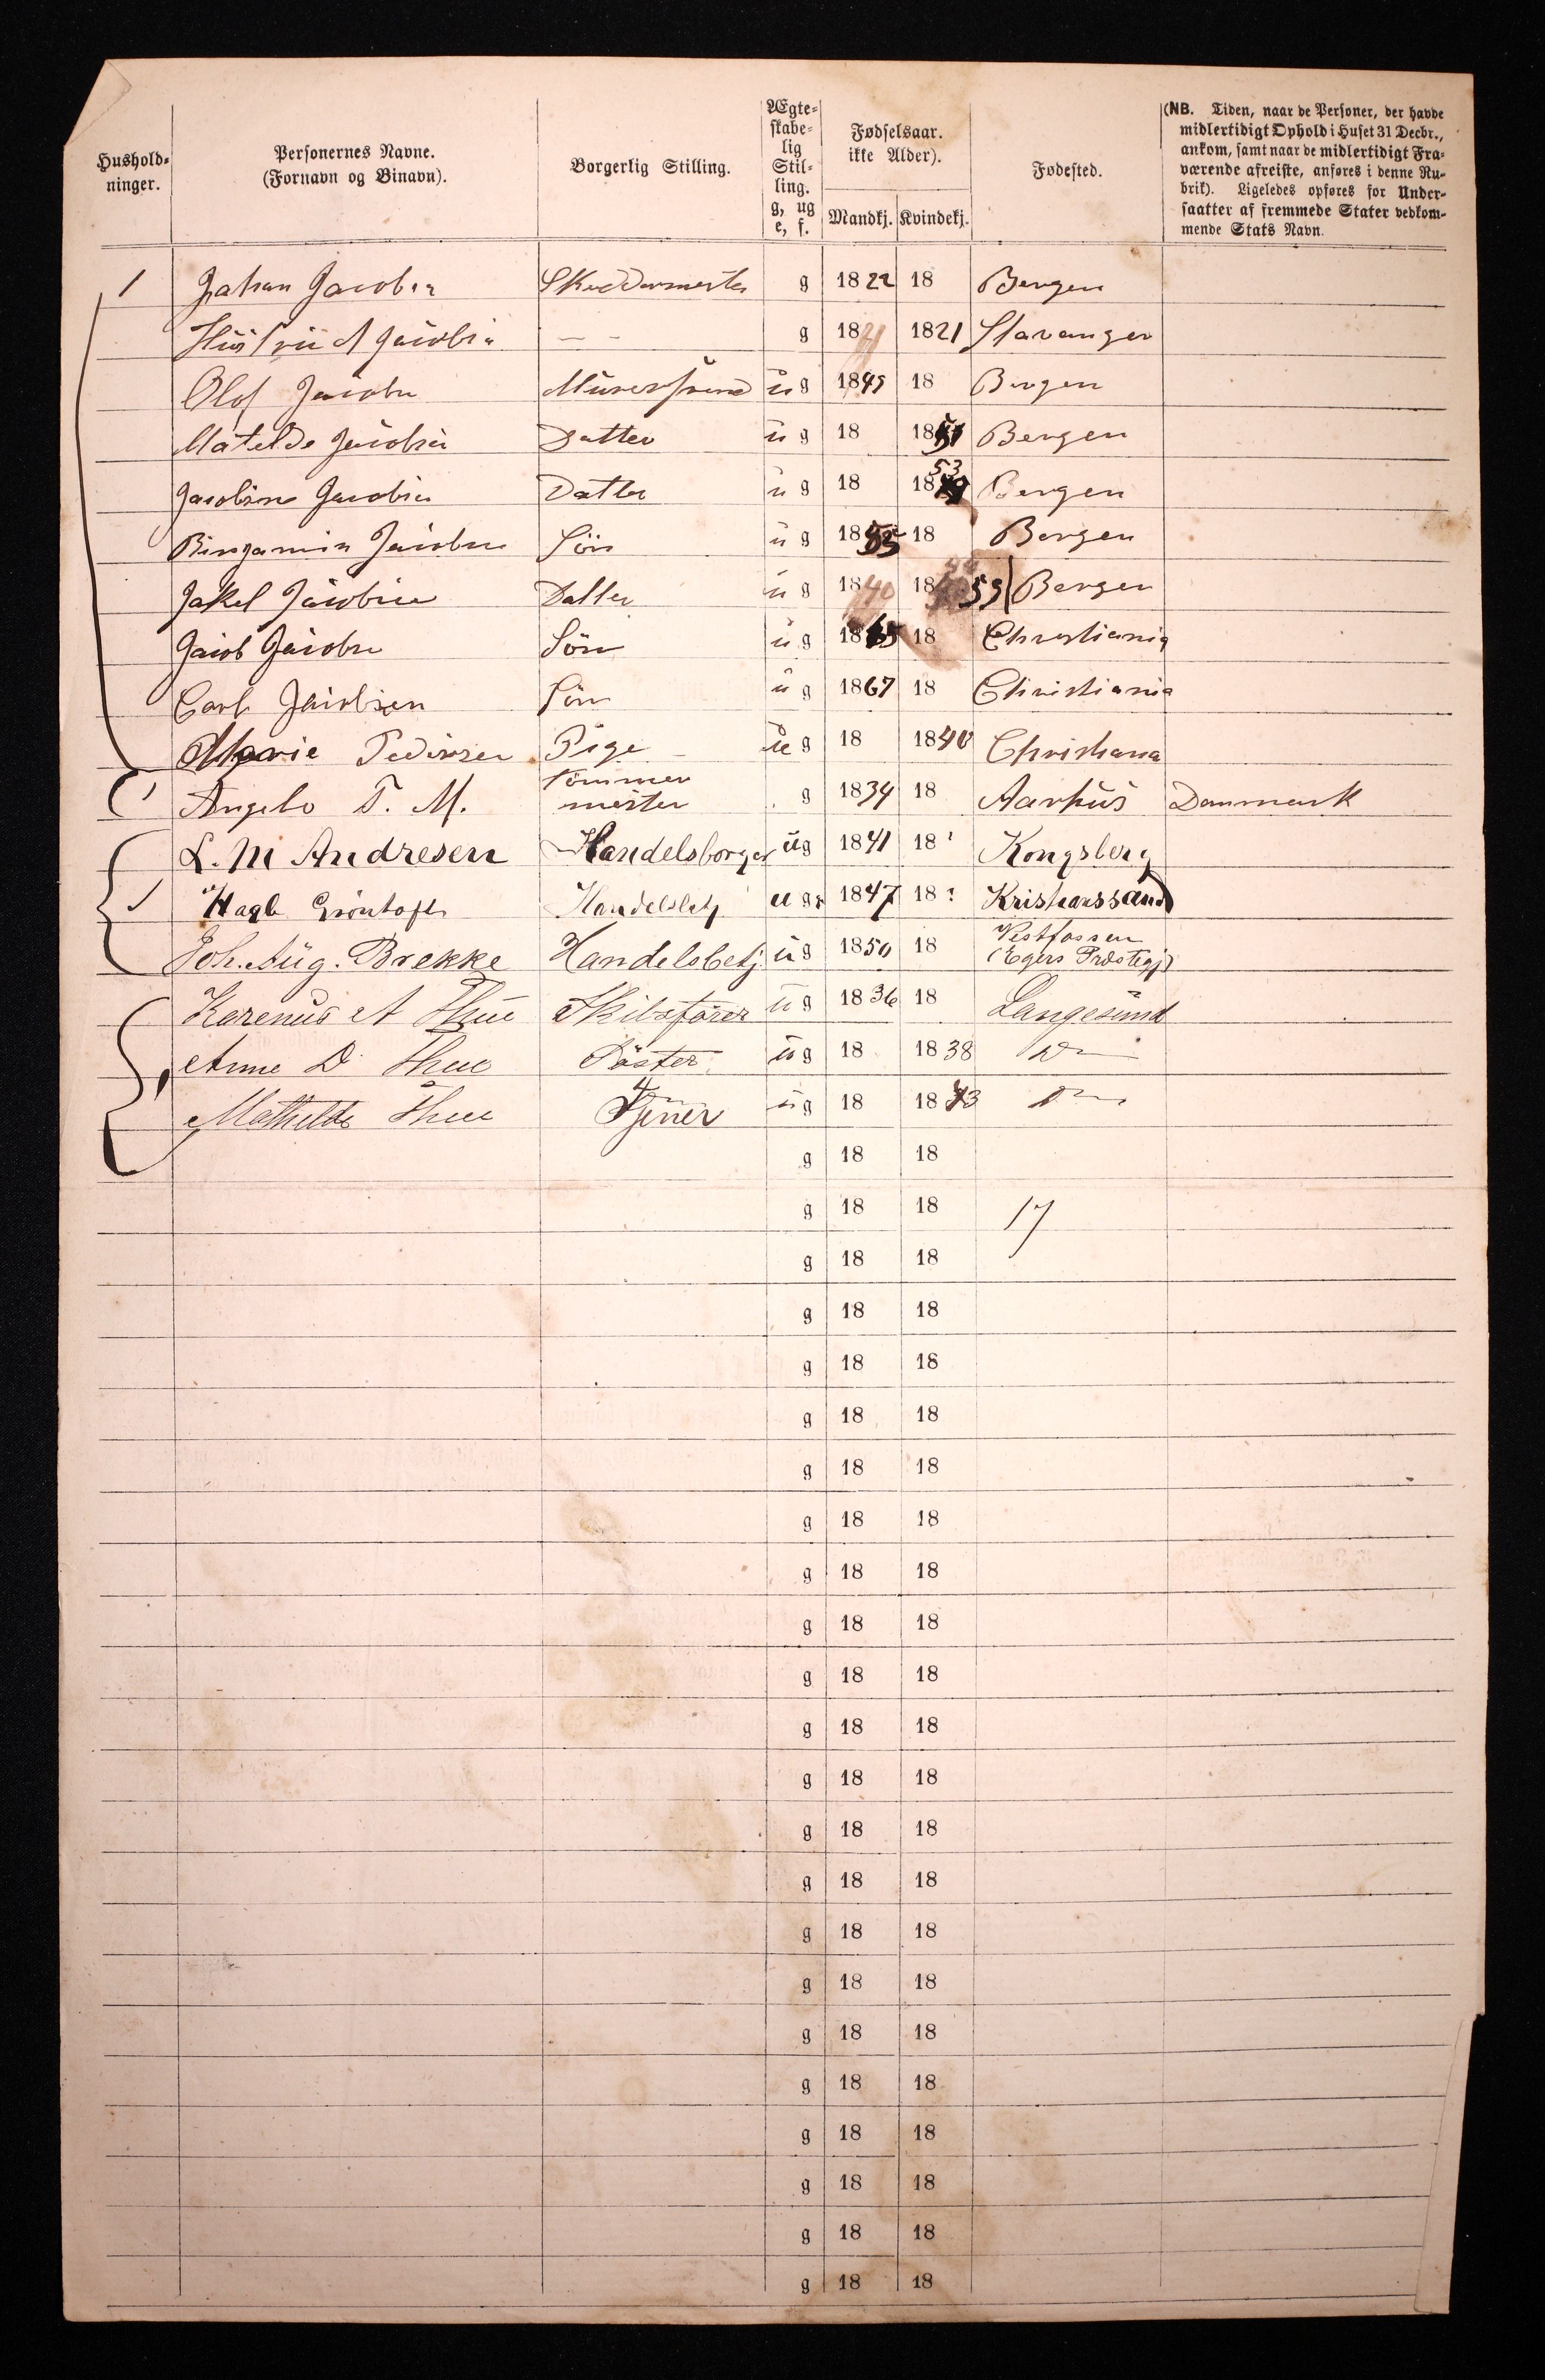 Hushold-
ninger.
Personernes Navne.
(Fornavn og Binavn).
Borgerlig Stilling.
Ægte-
skabe-
lig
Stil-
ling.
g, ug
e, f.
Fødselsaar.
ikke Alder).
Mandkj. Kvindekj.
Fødested.
(NB. Tiden, naar de Personer, der havde
midlertidigt Ophold i Huset 31 Decbr.,
ankom, samt naar de midlertidigt Fra-
værende afreiste, anføres i denne Ru-
brik). Ligeledes opføres for Under-
saatter af fremmede Stater vedkom-
mende Stats Navn.
1 Johan Jacobsen Skreddermester g 1822 18 Bergen
Hustrü A Jacobsen — — g 18 1821 Stavanger
Olof Jacobsen Mürersvend ü g 1849 18 Bergen
Matelde Jacobsen Datter ü g 18 1851 Bergen
Jacobine Jacobsen Datter ü g 18 1853 Bergen
Bingamin Jacobsen Sön ü g 1855 18 Bergen
Jakel Jacobsen Datter ü g 18 1859 Bergen
Jacob Jacobsen Sön ü g 1865 18 Christiania
Carl Jacobsen Sön ü g 1867 18 Christiania
Marie Pedersen Pige ü g 18 1840 Christiania
1 Angelo T. M. Tömmer
mester g 1834 18 Aarhüs Danmark
L. M Andresen Handelsborger ü g 1841 18 Kongsberg
1 Gröntoft Handelsbetj u g 1847 18 Kristianssand
Joh. Aüg. Brekke Handelsbetj ü g 1850 18 Vestfossen
(Egers Præstegj)
Karenüs A Thue Skibsförer ü g 1836 18 Langesünd
1 Anne D Thue Söster ü g 18 1838 Do
Mathilde Thue Tjener ü g 18 1843 Do
g 18 18
g 18 18 17
g 18 18
g 18 18
g 18 18
g 18 18
g 18 18
g 18 18
g 18 18
g 18 18
g 18 18
g 18 18
g 18 18
g 18 18
g 18 18
g 18 18
g 18 18
g 18 18
g 18 18
g 18 18
g 18 18
g 18 18
g 18 18